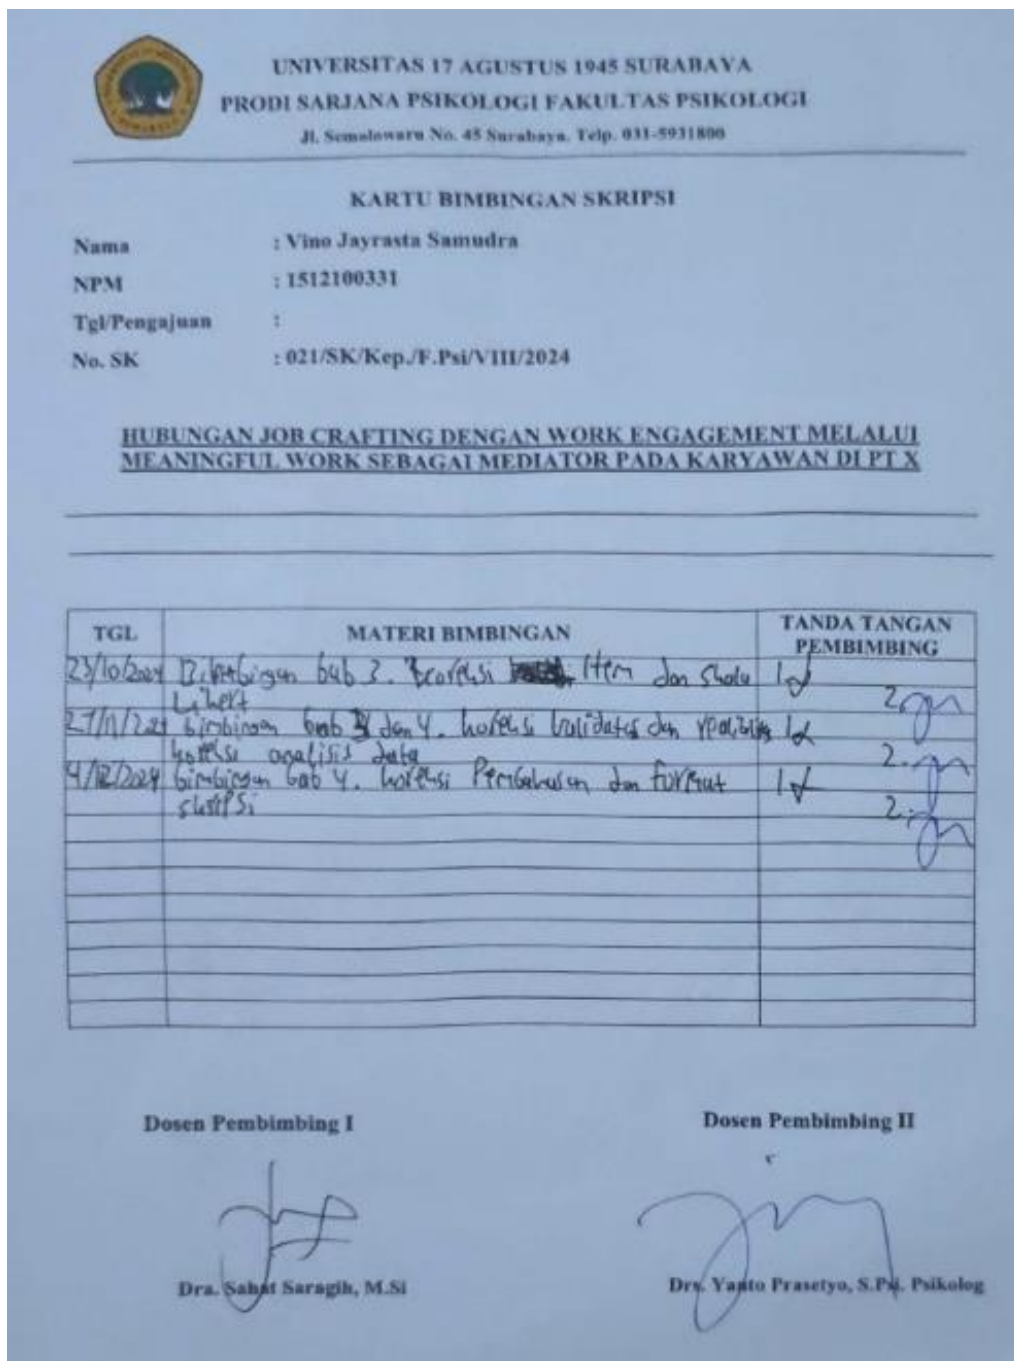 UNIVERSITAS 17 AGUSTUS 1945 SURABAYA
PRODI SARJANA PSIKOLOGI FAKULTAS PSIKOLOGI
Jl. Semolowaru No. 45 Surabaya. Telp. 031-5931800
KARTU BIMBINGAN SKRIPSI
Nama : Vino Jayrasta Samudra
NPM : 1512100331
Tgl/Pengajuan :
No. SK : 021/SK/Kep./F.Psi/VIII/2024
HUBUNGAN JOB CRAFTING DENGAN WORK ENGAGEMENT MELALUI
MEANINGFUL WORK SEBAGAI MEDIATOR PADA KARYAWAN DI PT X
TGL MATERI BIMBINGAN TANDA TANGAN
PEMBIMBING
23/10/2024 bab 3. Item dan 1
Likert 2.
bimbingan bab dan 4. koreksi validitas dan 1
koreksi analisis data 2.
4/12/2024 bimbingan bab 4. koreksi Pembahasan dan format 1
skripsi 2.
Dosen Pembimbing I Dosen Pembimbing II
Dra. Sahat Saragih, M.Si Drs. Yanto Prasetyo, S.Psi. Psikolog